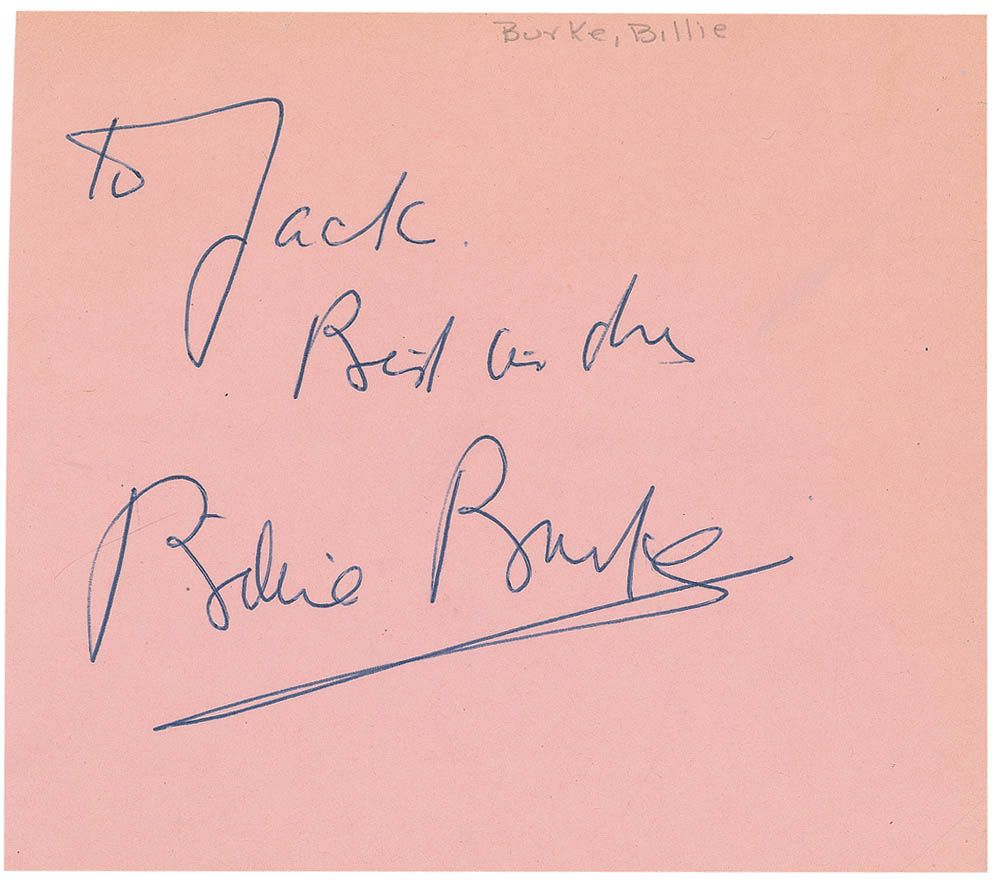 Burke, Billie
To Jack.
Best wishes
Billie Burke